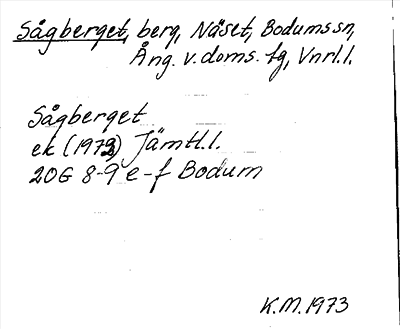 Sågberget, berg, Näset, Bodumssn,
Ång. v. doms. tg, Vnrl. l.
Sågberget
ek (1973) Jämtl. l.
20G 8-9 e-f Bodum
K.M. 1973